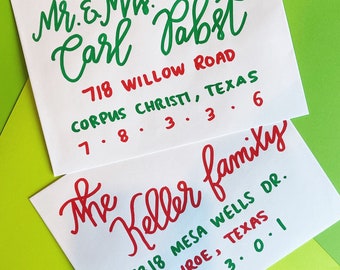 Mr. & Mrs.
Carl Pabst
718 WILLOW ROAD
CORPUS CHRISTI, TEXAS
7 · 8 · 3 · 3 · 6
The
Keller family
218 MESA WELLS DR.
TEXAS
3 · 0 · 1